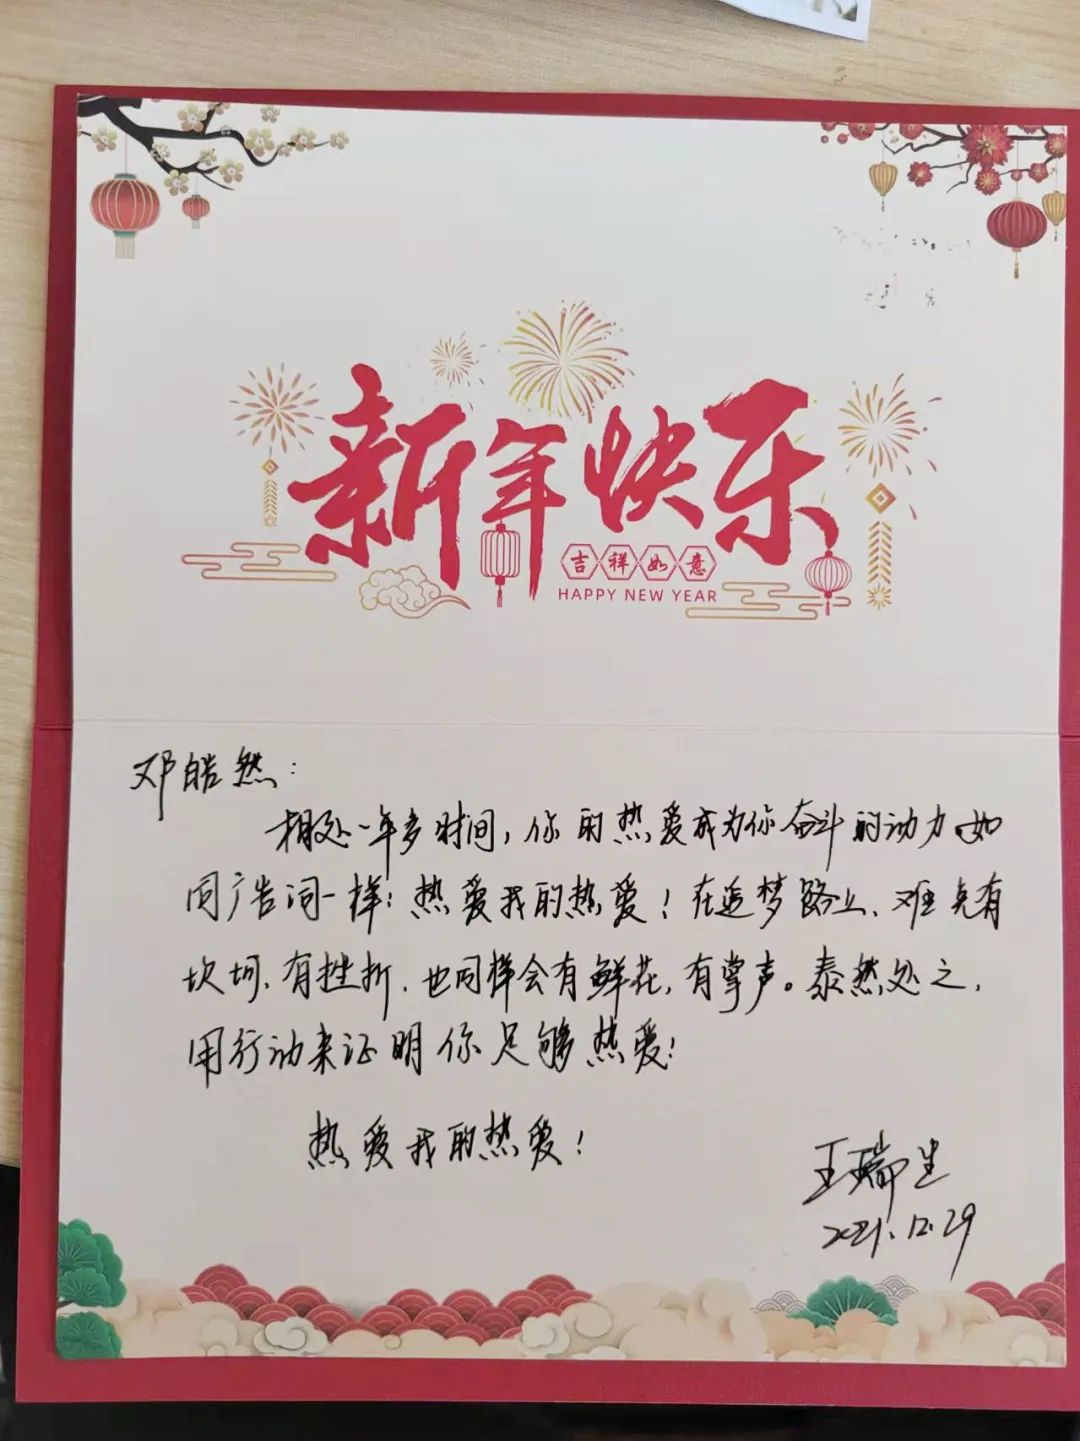 新年快乐
吉祥如意
HAPPY NEW YEAR
邓皓然：
相处一年多时间，你的热爱成为你奋斗的动力，如
同广告词一样：热爱我的热爱！在追梦路上，难免有
坎坷，有挫折，也同样会有鲜花，有掌声。泰然处之，
用行动来证明你足够热爱！
热爱我的热爱！
王瑞生
2021.12.29